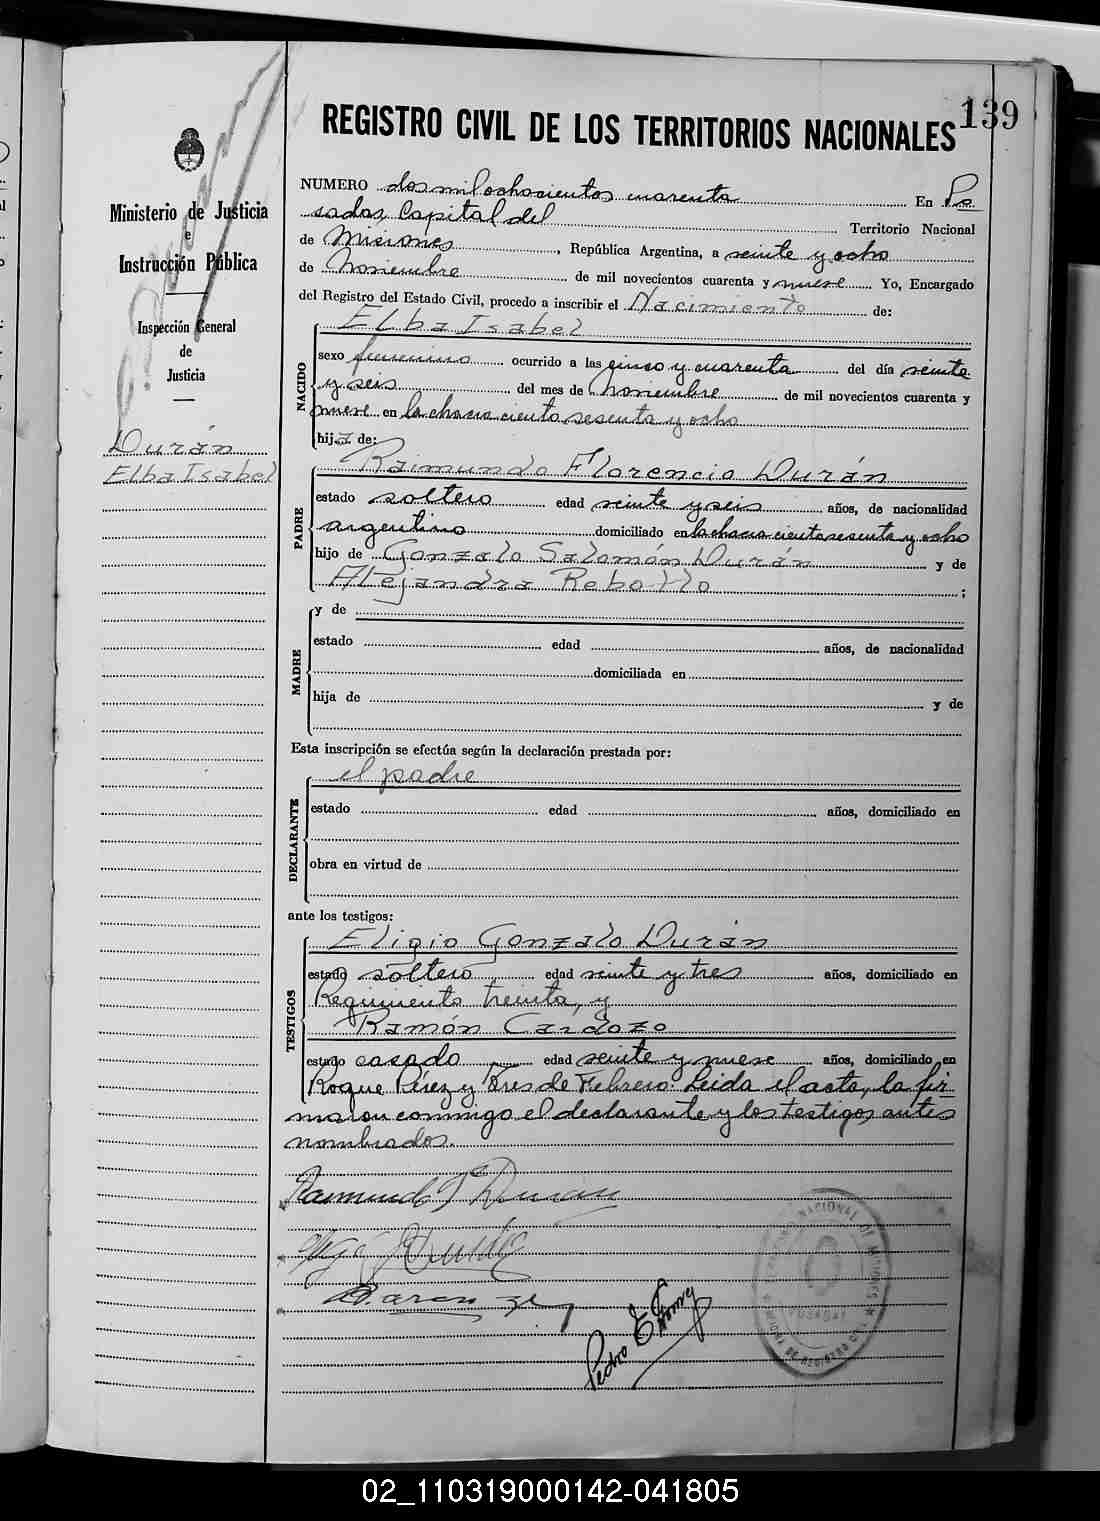 139
REGISTRO CIVIL DE LOS TERRITORIOS NACIONALES
Ministerio de Justicia
e
Instrucción Pública
Inspección General
de
Justicia
Durán
Elba Isabel
NUMERO dos mil ochocientos cuarenta En Po
sadas, Capital del Territorio Nacional
de Misiones, República Argentina, a veinte y ocho
de Noviembre de mil novecientos cuarenta y nueve Yo, Encargado
del Registro del Estado Civil, procedo a inscribir el Nacimiento de:
NACIDO
Elba Isabel
sexo femenino ocurrido a las cinco y cuarenta del día veinte
y seis del mes de noviembre de mil novecientos cuarenta y
nueve en la chacra ciento sesenta y ocho
hija de:
PADRE
Raimundo Florencio Durán
estado soltero edad veinte y seis años, de nacionalidad
argentino domiciliado en la chacra ciento sesenta y ocho
hijo de Gonzalo Salomón Durán y de
Alejandra Rebollo ;
MADRE
y de
estado edad años, de nacionalidad
domiciliada en
hija de y de
Esta inscripción se efectúa según la declaración prestada por:
DECLARANTE
el padre
estado edad años, domiciliado en
obra en virtud de
ante los testigos:
TESTIGOS
Eligio Gonzalo Durán
estado soltero edad veinte y tres años, domiciliado en
Regimiento treinta, y
Ramón Cardozo
estado casado edad veinte y nueve años, domiciliado en
Roque Pérez y Tres de Febrero. Leida el acta, la fir
maron conmigo el declarante y los testigos antes
nombrados.
Raimundo F Duran
Pedro E
TERRITORIO NACIONAL DE MISIONES
POSADAS
OFICINA DE REGISTRO CIVIL
02_110319000142-041805